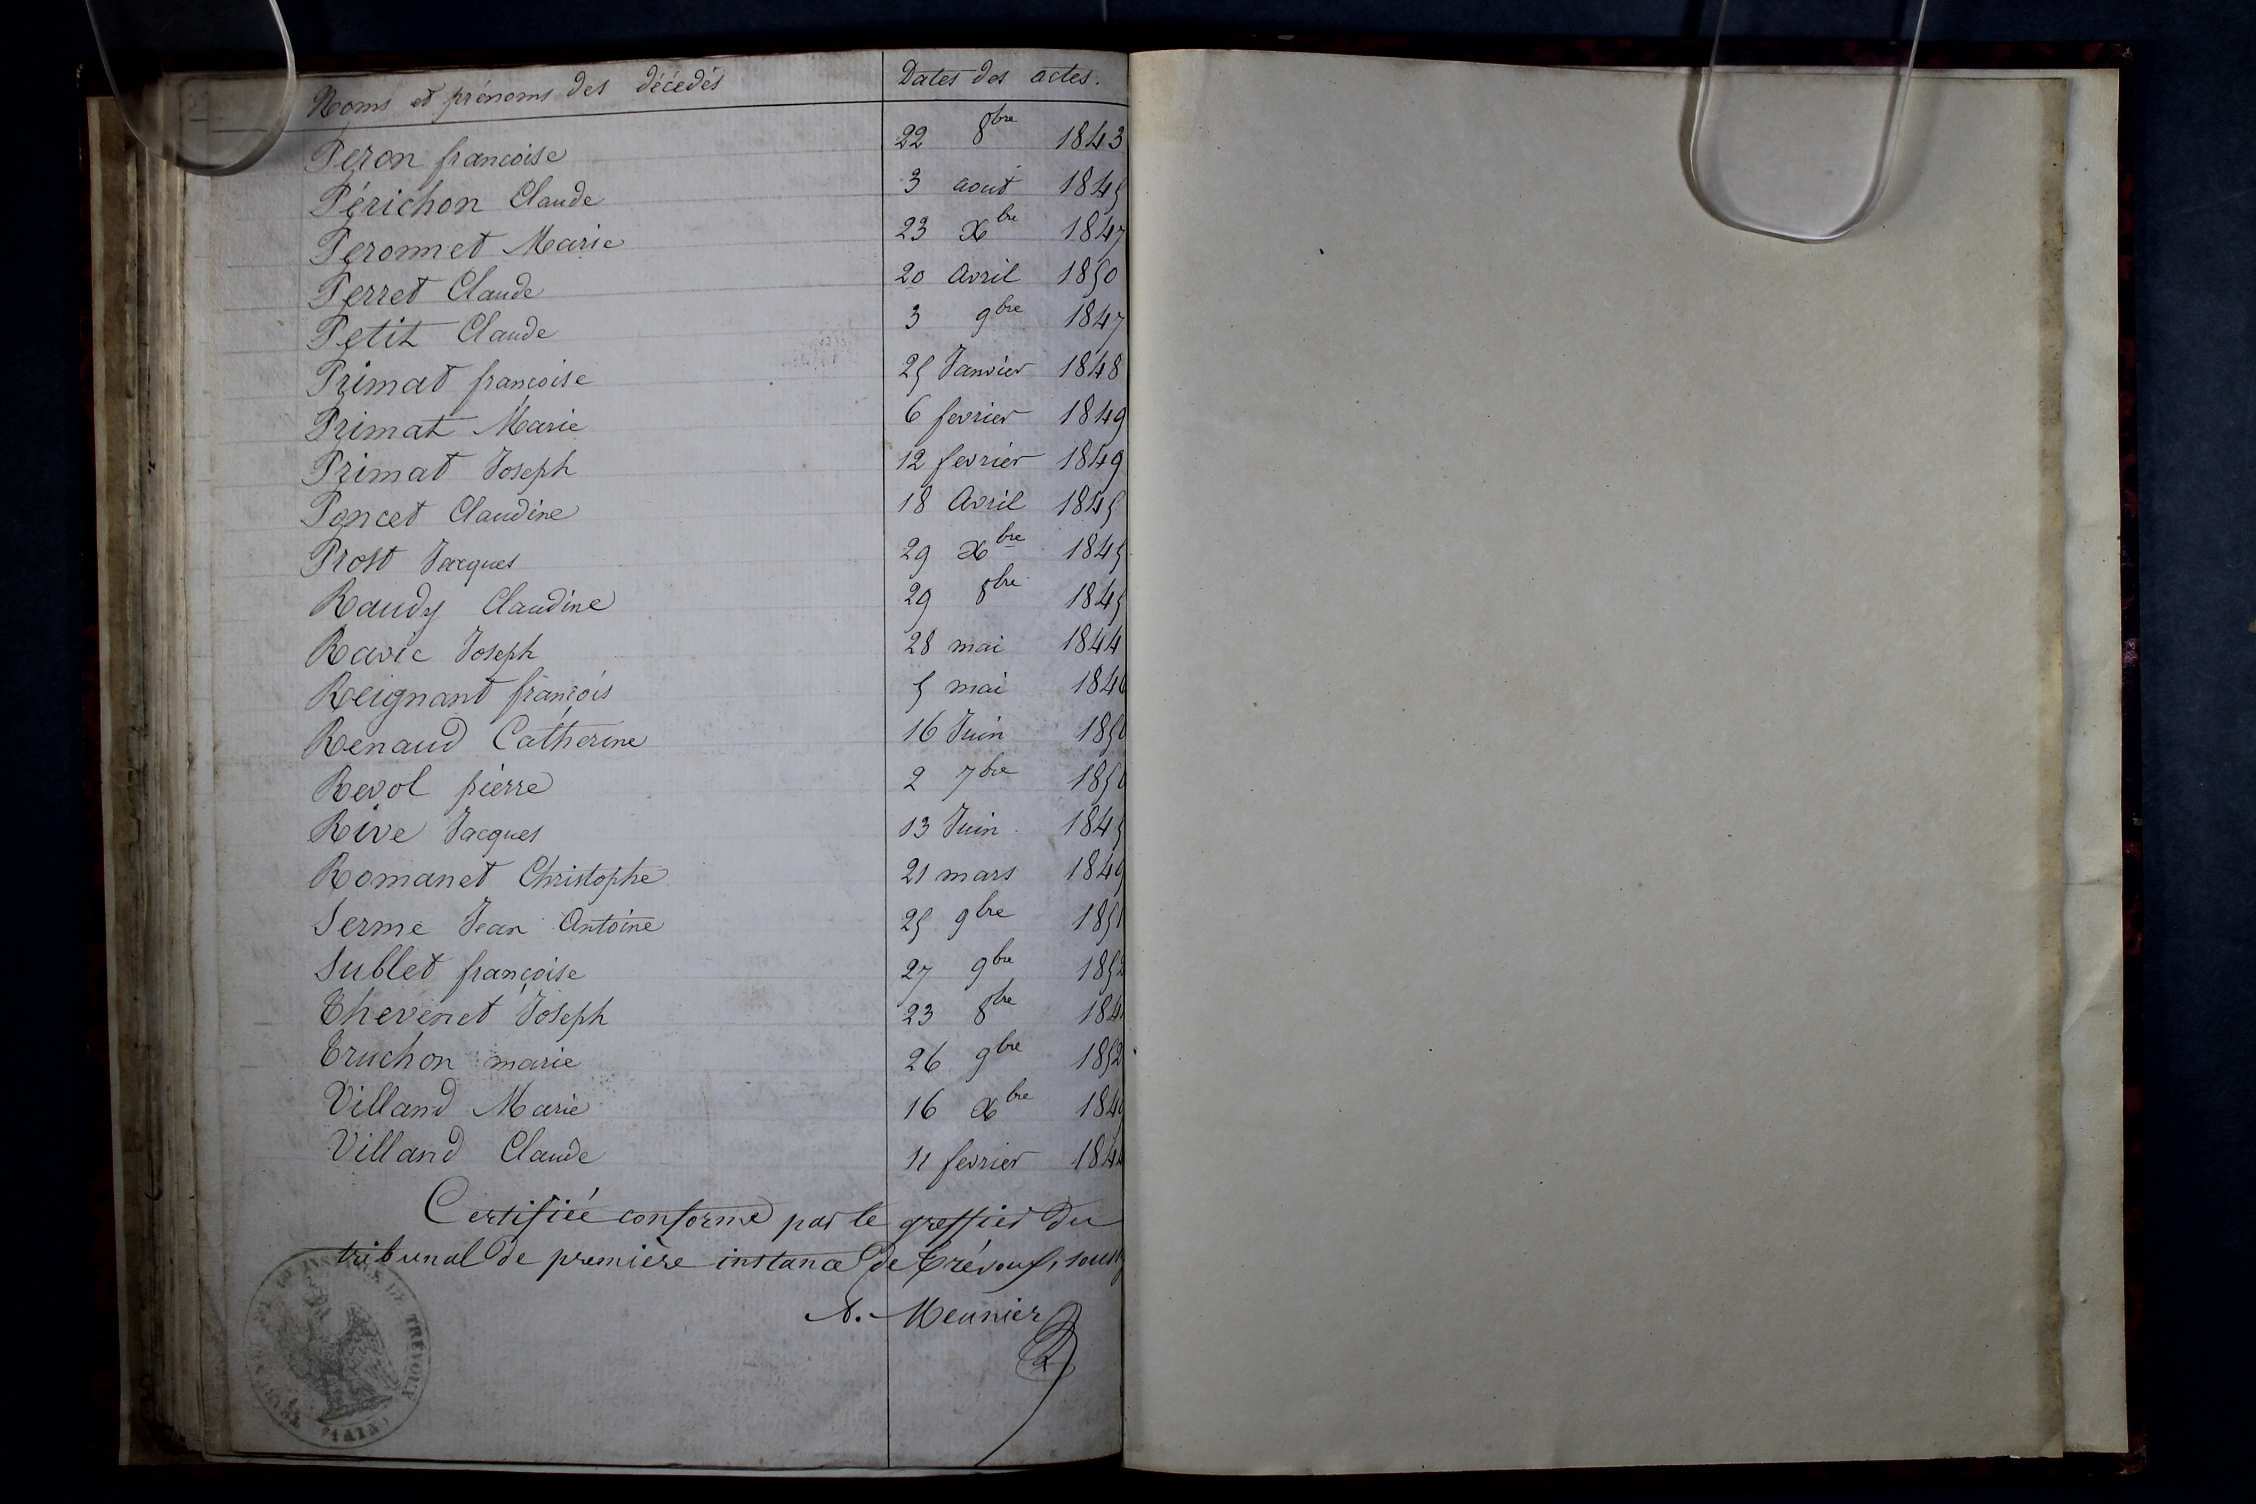 Noms et prénoms des décédés Dates des actes.
Peron francoise 22 8bre 1843
Périchon Claude 3 aout 1845
Peronnet Marie 23 Xbre 1847
Perret Claude 20 Avril 1850
Petit Claude 3 9bre 1847
Primat francoise 25 Janvier 1848
Primat Marie 6 fevrier 1849
Primat Joseph 12 fevrier 1849
Poncet Claudine 18 Avril 1845
Prost Jacques 29 Xbre 1845
Raudy Claudine 29 8bre 1845
Ravie Joseph 28 mai 1844
Reignant françois 5 mai
Renaud Catherine 16 Juin 1850
Revol pierre 2 7bre 1850
Rive Jacques 13 Juin 1845
Romanet Christophe 21 mars 1849
Serme Jean Antoine 25 9bre 1851
Sublet françoise 27 9bre 1852
Thevenet Joseph 23 8bre
Truchon marie 26 9bre 1852
Villand Marie 16 Xbre 1849
Villand Claude 11 fevrier
Certifiée conforme par le greffier du
tribunal de première instance de Trévoux,
A. Meunier
TRÉVOUX
(AIN)